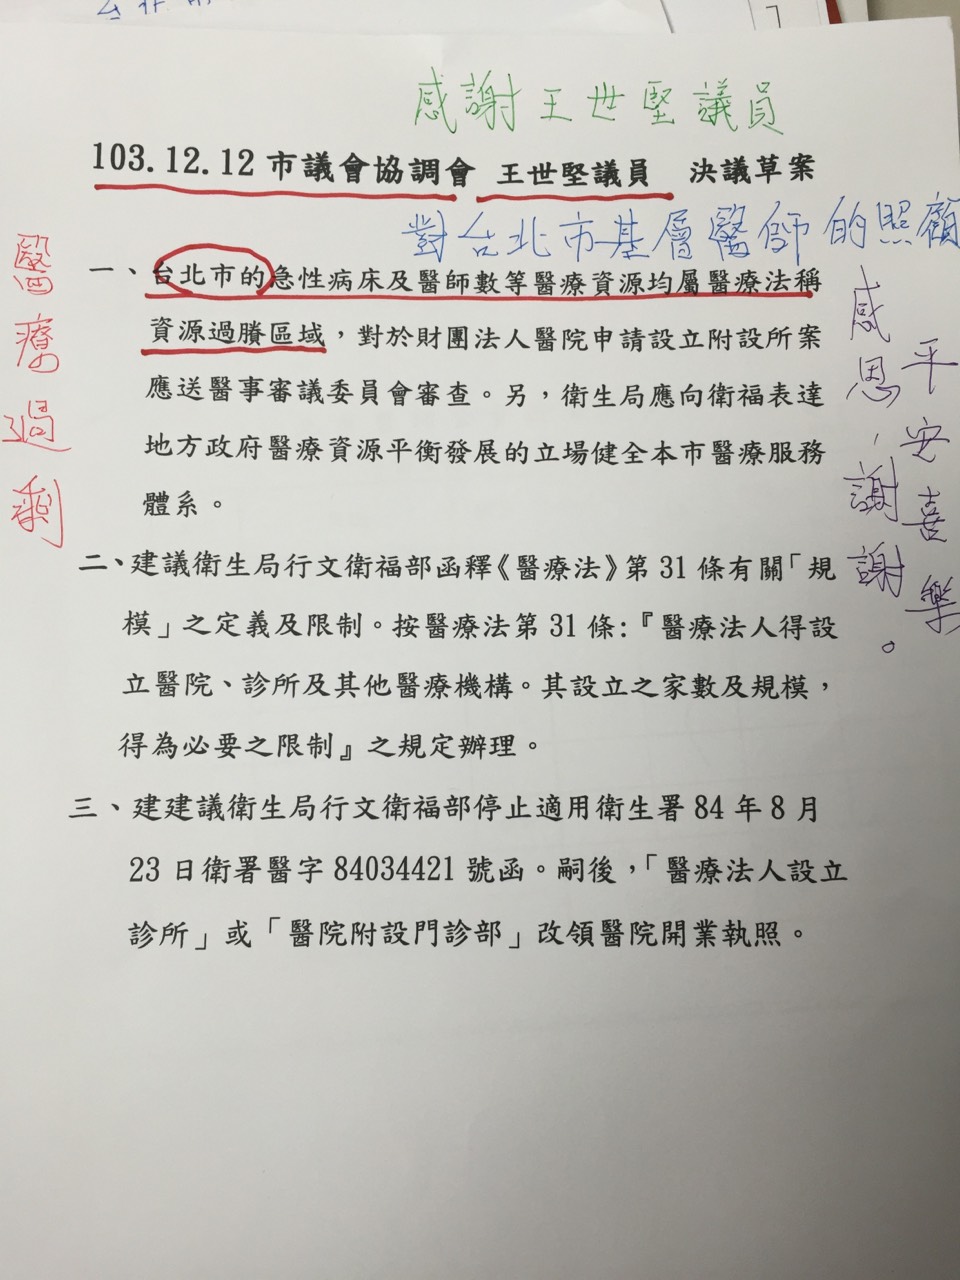 感謝王世堅議員
103.12.12 市議會協調會 王世堅議員 決議草案
對台北市基層醫師的照顧
一、台北市的急性病床及醫師數等醫療資源均屬醫療法稱
資源過賸區域，對於財團法人醫院申請設立附設所案
應送醫事審議委員會審查。另，衛生局應向衛福表達
地方政府醫療資源平衡發展的立場健全本市醫療服務
體系。
二、建議衛生局行文衛福部函釋《醫療法》第 31 條有關「規
模」之定義及限制。按醫療法第 31 條:『醫療法人得設
立醫院、診所及其他醫療機構。其設立之家數及規模，
得為必要之限制』之規定辦理。
三、建建議衛生局行文衛福部停止適用衛生署 84 年 8 月
23 日衛署醫字 84034421 號函。嗣後，「醫療法人設立
診所」或「醫院附設門診部」改領醫院開業執照。
醫療過剩
感恩，謝謝。
平安喜樂